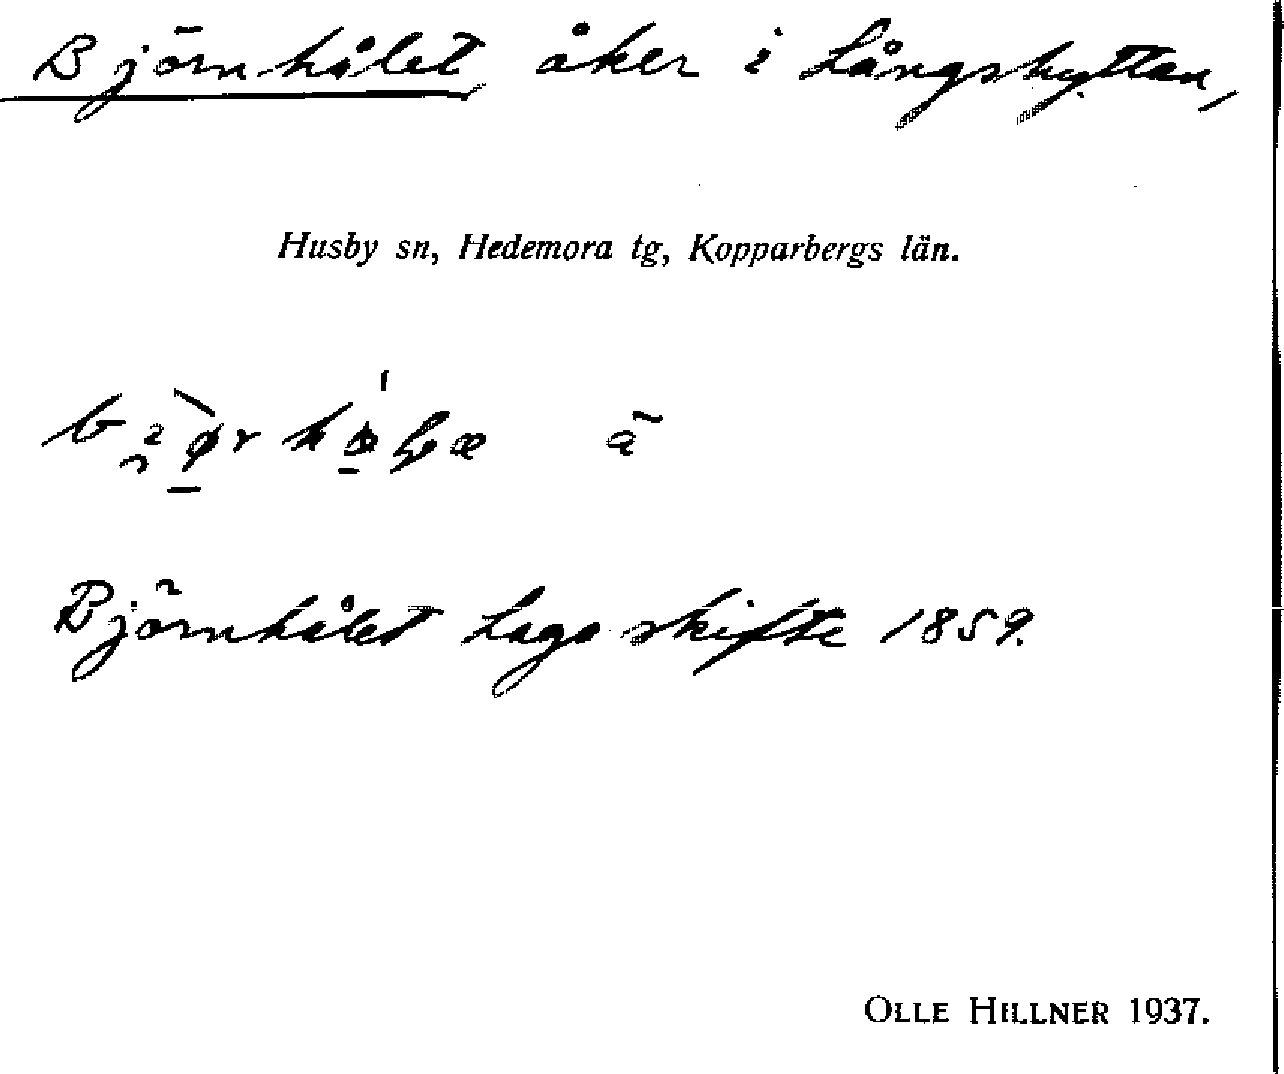 Björnhålet åker i Långshyttan,
Husby sn, Hedemora tg, Kopparbergs län.
Björnhålet Laga skifte 1859.
OLLE HILLNER 1937.